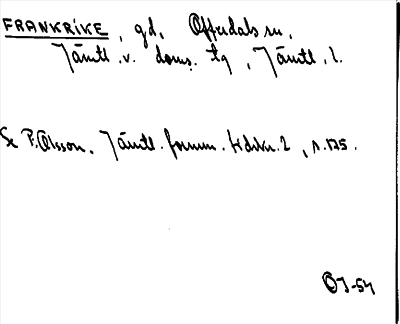 FRANKRIKE, gd, Offerdals sn,
Jämtl. v. doms. tg, Jämtl. l.
Se P. Olsson, Jämtl. fornm. tidskr. 2, s. 175.
OJ-54